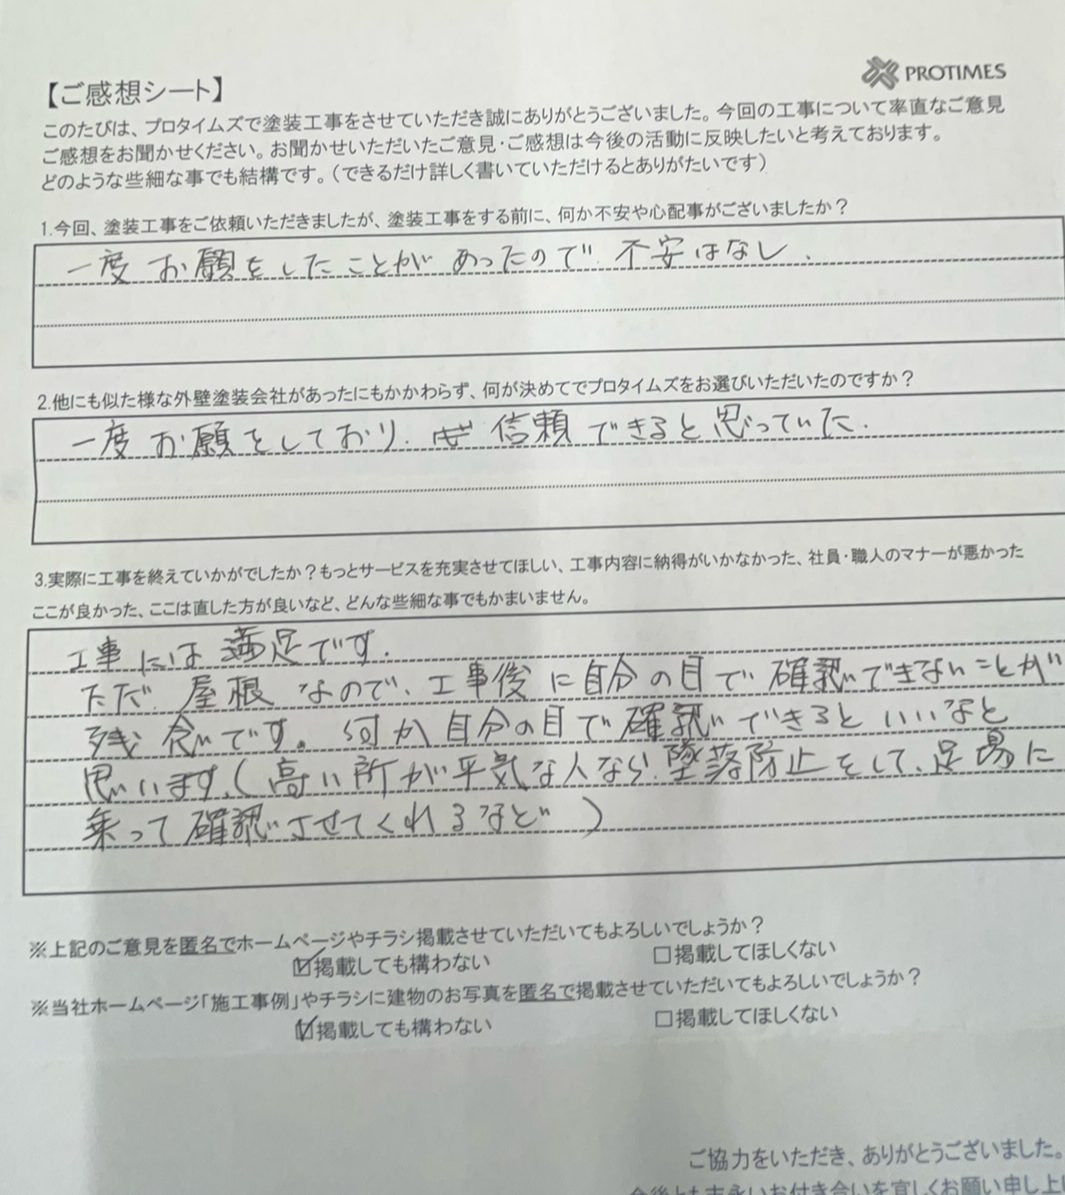 PROTIMES
【ご感想シート】
このたびは、プロタイムズで塗装工事をさせていただき誠にありがとうございました。今回の工事について率直なご意見
ご感想をお聞かせください。お聞かせいただいたご意見・ご感想は今後の活動に反映したいと考えております。
どのような些細な事でも結構です。(できるだけ詳しく書いていただけるとありがたいです)
1.今回、塗装工事をご依頼いただきましたが、塗装工事をする前に、何か不安や心配事がございましたか？
一度お願をしたことがあったので不安はなし.
2.他にも似た様な外壁塗装会社があったにもかかわらず、何が決めてでプロタイムズをお選びいただいたのですか？
一度お願をしており. 信頼できると思っていた.
3.実際に工事を終えていかがでしたか？もっとサービスを充実させてほしい、工事内容に納得がいかなかった、社員・職人のマナーが悪かった
ここが良かった、ここは直した方が良いなど、どんな些細な事でもかまいません。
工事には満足です.
ただ. 屋根なので、工事後に自分の目で確認できないことが
残念です。何か自分の目で確認できるといいなと
思います.(高い所が平気な人なら.墜落防止をして、足場に
乗って確認させてくれるなど)
※上記のご意見を匿名でホームページやチラシ掲載させていただいてもよろしいでしょうか？
☑掲載しても構わない □掲載してほしくない
※当社ホームページ「施工事例」やチラシに建物のお写真を匿名で掲載させていただいてもよろしいでしょうか？
☑掲載しても構わない □掲載してほしくない
ご協力をいただき、ありがとうございました。
今後とも末永いお付き合いを宜しくお願い申し上